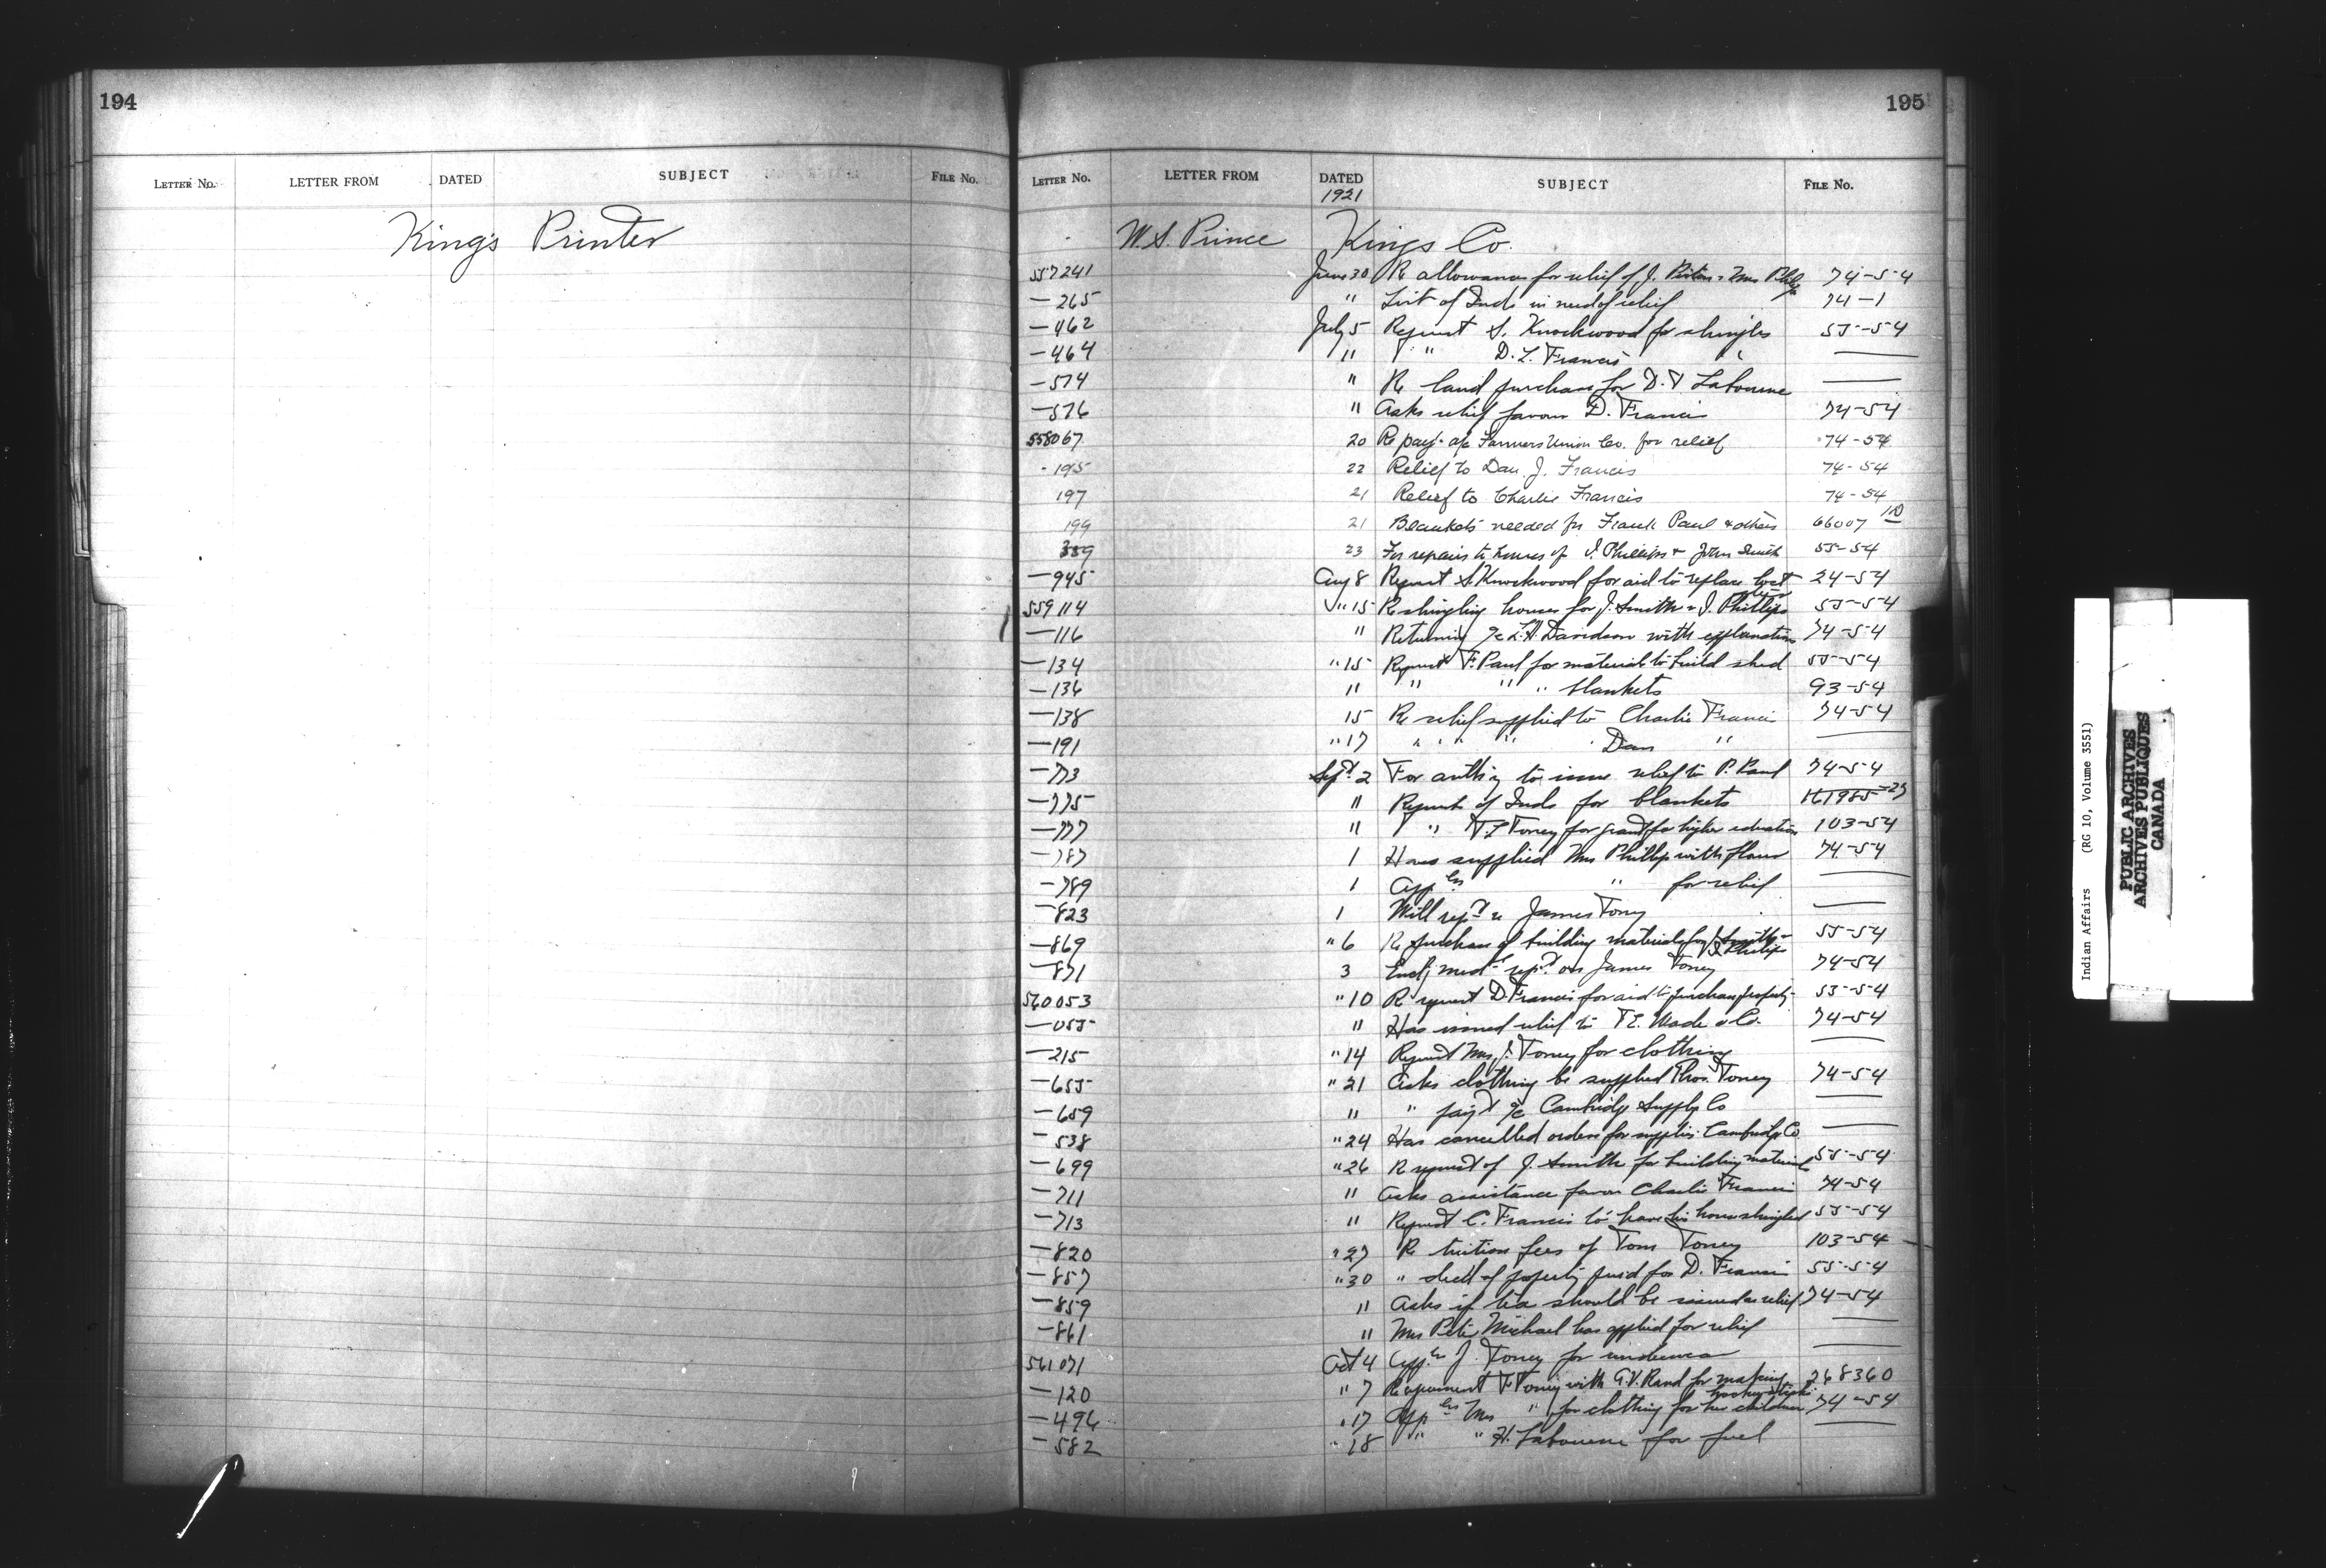 194
LETTER No. LETTER FROM DATED SUBJECT FILE No.
King's Printer
195
LETTER No. LETTER FROM DATED SUBJECT FILE No.
1921
W. S. Prince Kings Co.
557241 June 30 Re allowances for relief of J. & Mrs 74-54
—265 " List of Inds in need of relief 74-1
—462 July 5 Request S. Knockwood for shingles 55-54
—464 " " " D. L. Francis "
—574 " Re land purchase for D. & Labourne
—576 " Asks relief favour D. Francis 74-54
558067 20 Re pay't a/c Farmers Union Co. for relief 74-54
195 22 Relief to Dan. J. Francis 74-54
197 21 Relief to Charlie Francis 74-54
199 21 Blankets needed for Frank Paul & others 66007
359 23 For repairs to houses of J. Phillips & John Smith 55-54
—945 Aug 8 Request S. Knockwood for aid to replace lost 24-54
559114 " 15 Re shingling houses for J. Smith & J. Phillips 55-54
—116 " Returning a/c L. H. Davidson with explanation 74-54
—134 " 15 Request F. Paul for material to build shed 55-54
—136 " " " " blankets 93-54
—138 15 Re relief supplied to Charlie Francis 74-54
—191 " 17 " " " " Dan "
—773 Sept 2 For auth'y to issue relief to P. Paul 74-54
—775 " Request of Inds for blankets 161985-23
—777 " " " Toney for grant for higher education 103-54
—787 1 Has supplied Mrs Phillip with flour 74-54
—789 1 App'en " for relief
—823 1 Will rep't re James Toney
—869 " 6 Re purchase of building materials for J. Smith & J. Phillips 55-54
—871 3 Encl'g med'l rep't on James Toney 74-54
560053 " 10 Re request D. Francis for aid to purchase property 53-54
—055 " Has issued relief to T. E. Wade & Co. 74-54
—215 " 14 Request Mrs. J. Toney for clothing
—655 " 21 Asks clothing be supplied Thos. Toney 74-54
—659 " " pay't a/c Cambridge Supply Co
—538 " 24 Has cancelled orders for supplies Cambridge Co.
—699 " 26 Re request of J. Smith for building material 55-54
—711 " Asks assistance favour Charlie Francis 74-54
—713 " Request C. Francis to have his house shingled 55-54
—820 " 27 Re tuition fees of Tom Toney 103-54
—857 " 30 " deed of property purd for D. Francis 55-54
—859 " Asks if tea should be issued as relief 74-54
—861 " Mrs Peter Michael has applied for relief
561071 Oct 4 App'en J. Toney for underwear
—120 " 7 Re agreement Toney with G. V. Rand for making hockey sticks 268360
—496 " 17 App'en Mrs " for clothing for her children 74-54
—582 " 18 " " H. Labourne for fuel
Indian Affairs (RG 10, Volume 3551)
PUBLIC ARCHIVES
ARCHIVES PUBLIQUES
CANADA